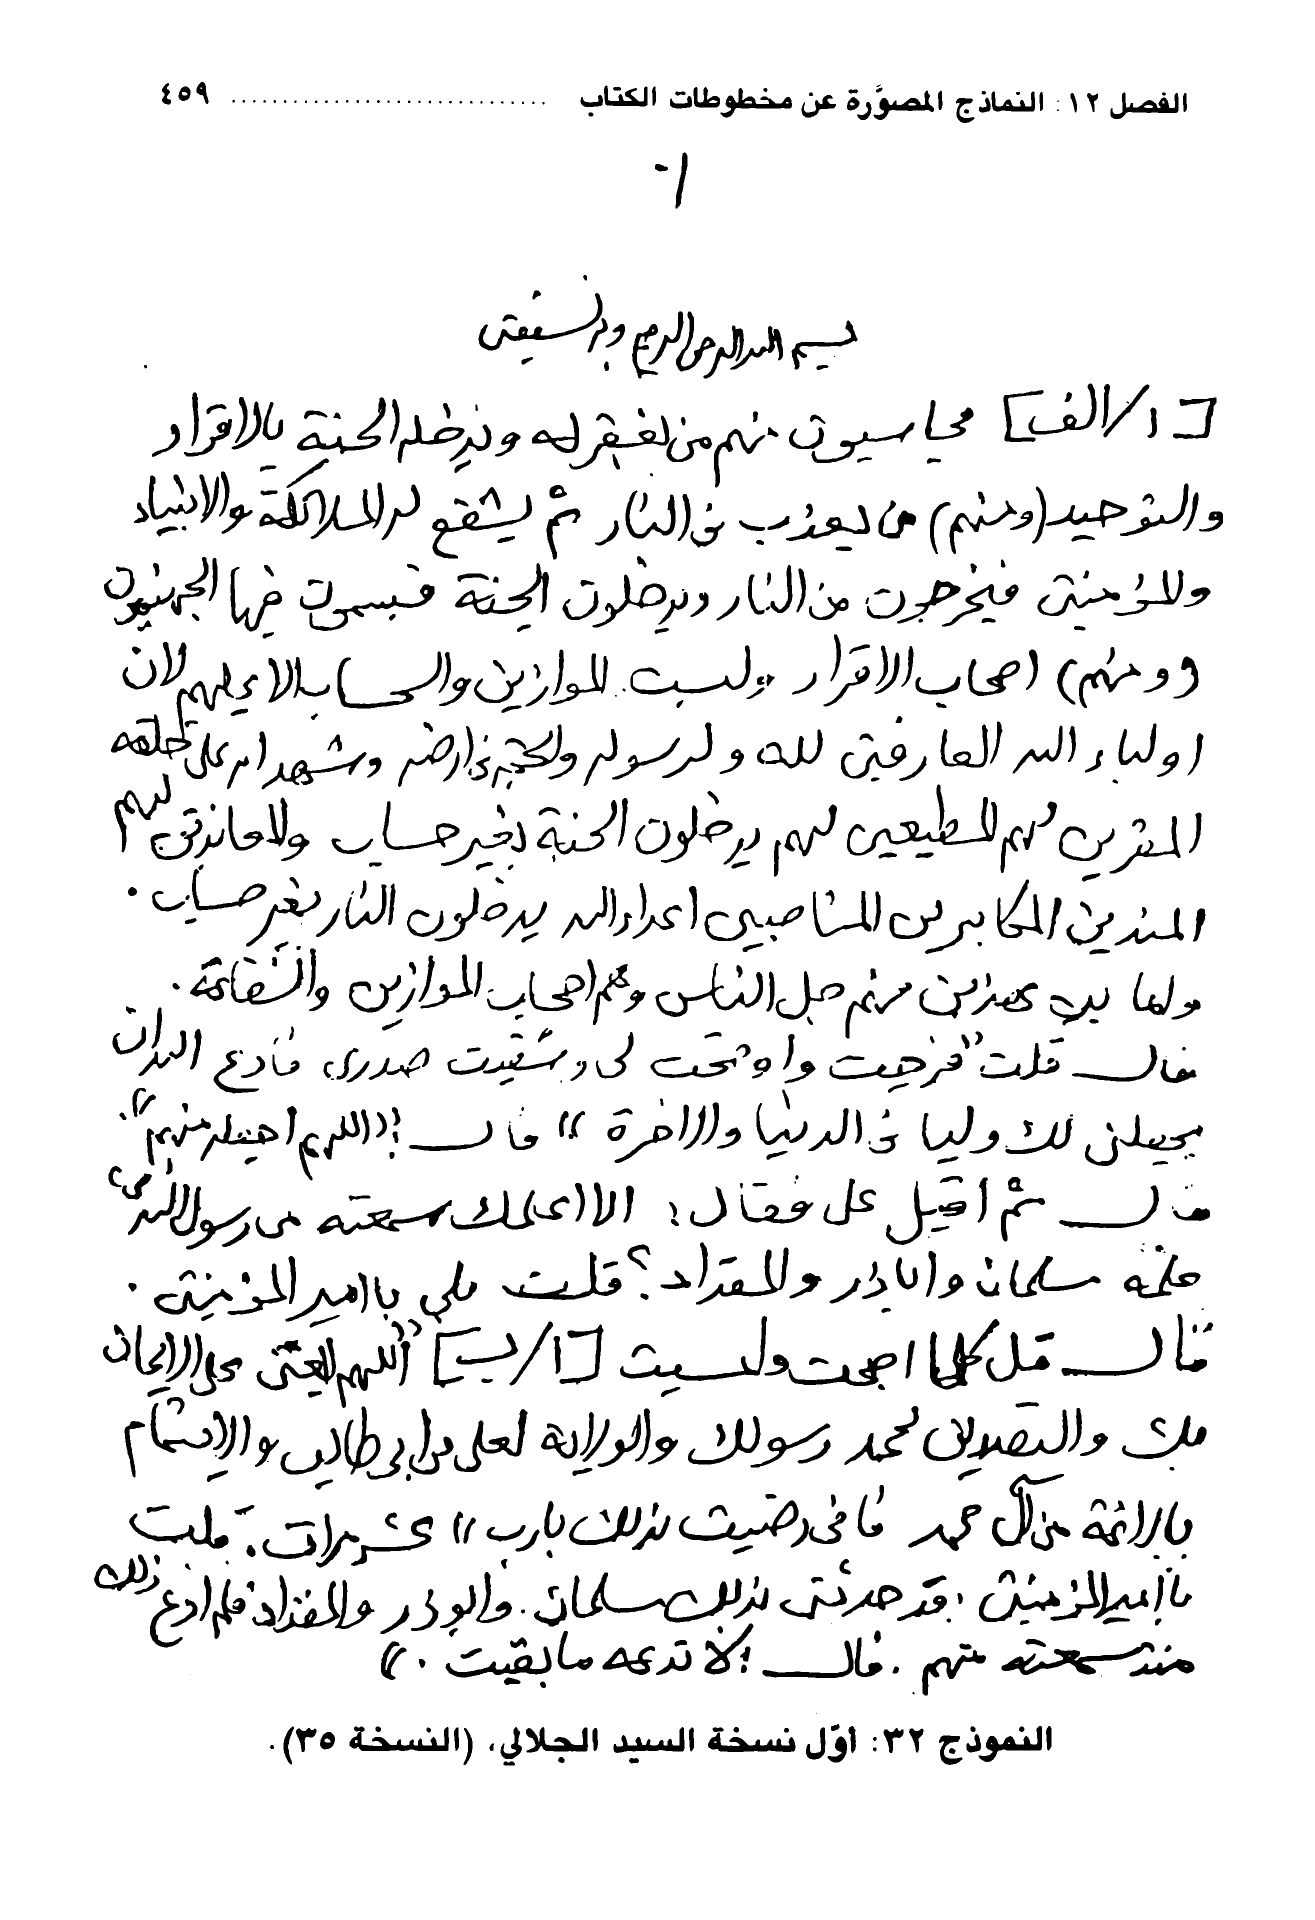 الفصل ١٢: النماذج المصوَّرة عن مخطوطات الكتاب ٤٥٩
١-
بسم الله الرحمن الرحيم وبه نستعين
[١/الف] محاسبون منهم من يغفر له ويدخله الجنة بالاقرار
والتوحيد (ومنهم) من يعذب في النار ثم يشفع له الملائكة والانبياء
والمؤمنين فيخرجون من النار ويدخلون الجنة فيسمون فيها الجهنميون
(ومنهم) اصحاب الاقرار وليست الموازين والحساب الا عليهم لان
اولياء الله العارفين لله ولرسوله والحجة في ارضه وشهدائه على خلقه
المقرين لهم المطيعين لهم يدخلون الجنة بغير حساب
المنذرين المكابرين المناصبين اعداء الله يدخلون النار بغير حساب.
واما بين هذين منهم جل الناس وهم اصحاب الموازين والشفاعة.
قال قلت "فرجت واوضحت لي وشفيت صدري فادع الله ان
يجعلني لك وليا في الدنيا والاخرة" قال: "اللهم اجعله منهم".
قال ثم أقبل علي فقال: الا اعلمك سمعته من رسول الله ص
علمه سلمان وابا ذر والمقداد؟ قلت بلى يا امير المؤمنين.
قال قل كلما اصبحت وامسيت [١/ب] "اللهم ابعثني على الايمان
بك والتصديق لمحمد رسولك والولاية لعلي بن ابي طالب والايتمام
بالائمة من آل محمد فاني رضيت بذلك يا رب" عشر مرات. قلت
يا أمير المؤمنين، قد حدثني بذلك سلمان. وابوذر والمقداد فلم ادع ذلك
منذ سمعته منهم. قال: لا تدعه ما بقيت."
النموذج ٣٢: اوّل نسخة السيد الجلالي، (النسخة ٣٥).